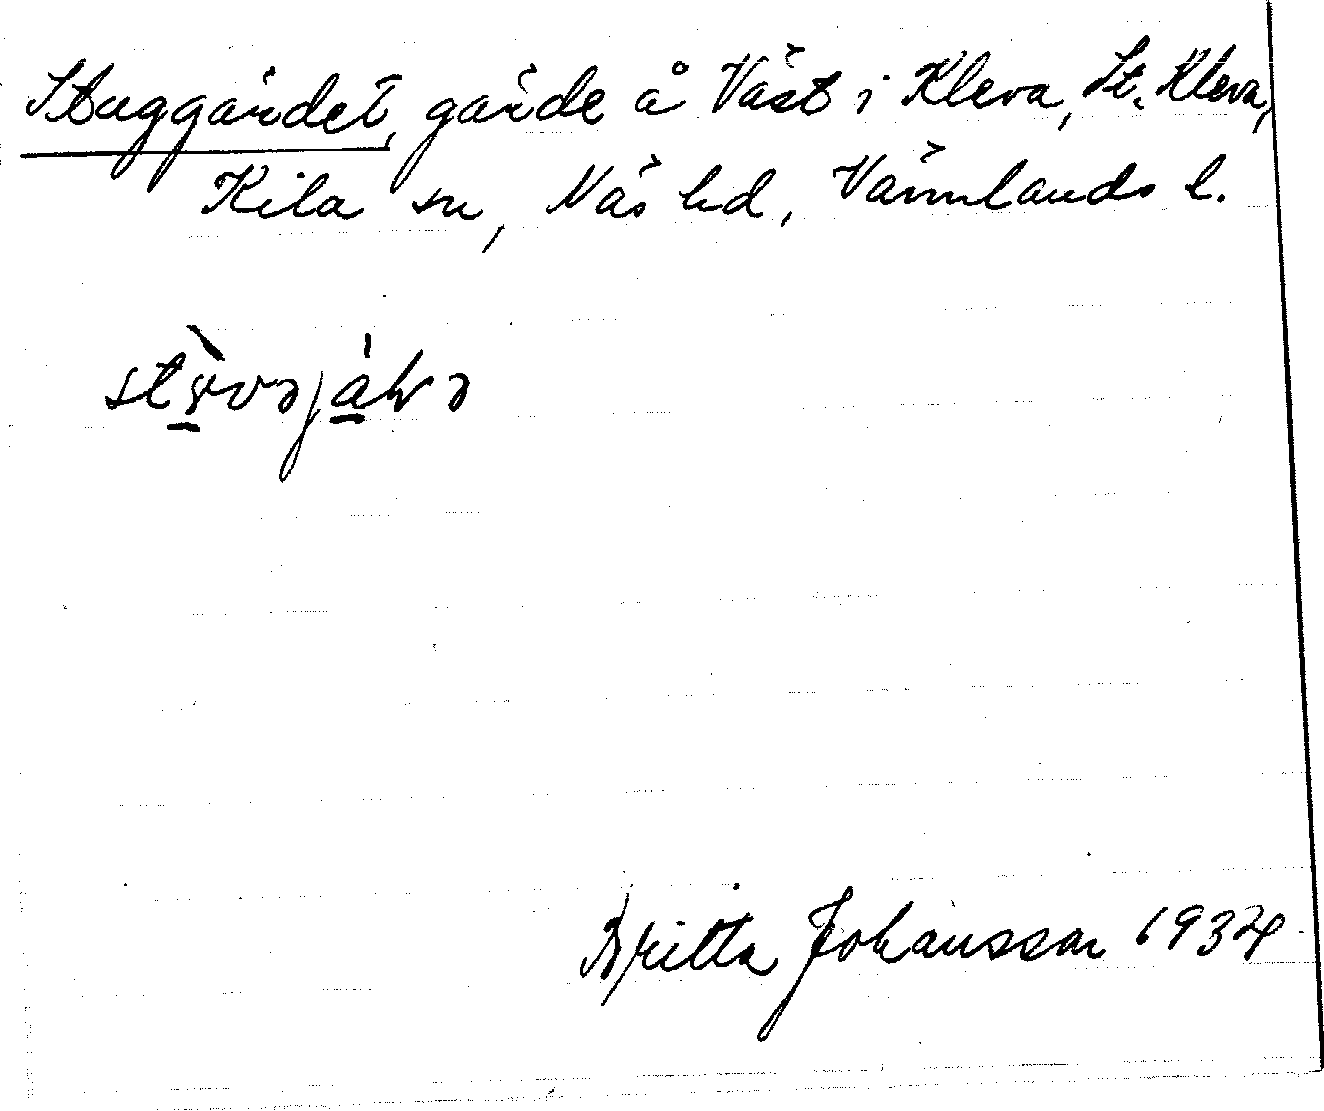 Stuggärdet, gärde å Väst i Kleva, St. Kleva,
Kila sn, Näs hd, Värmlands l.
Britta Johansson 1934